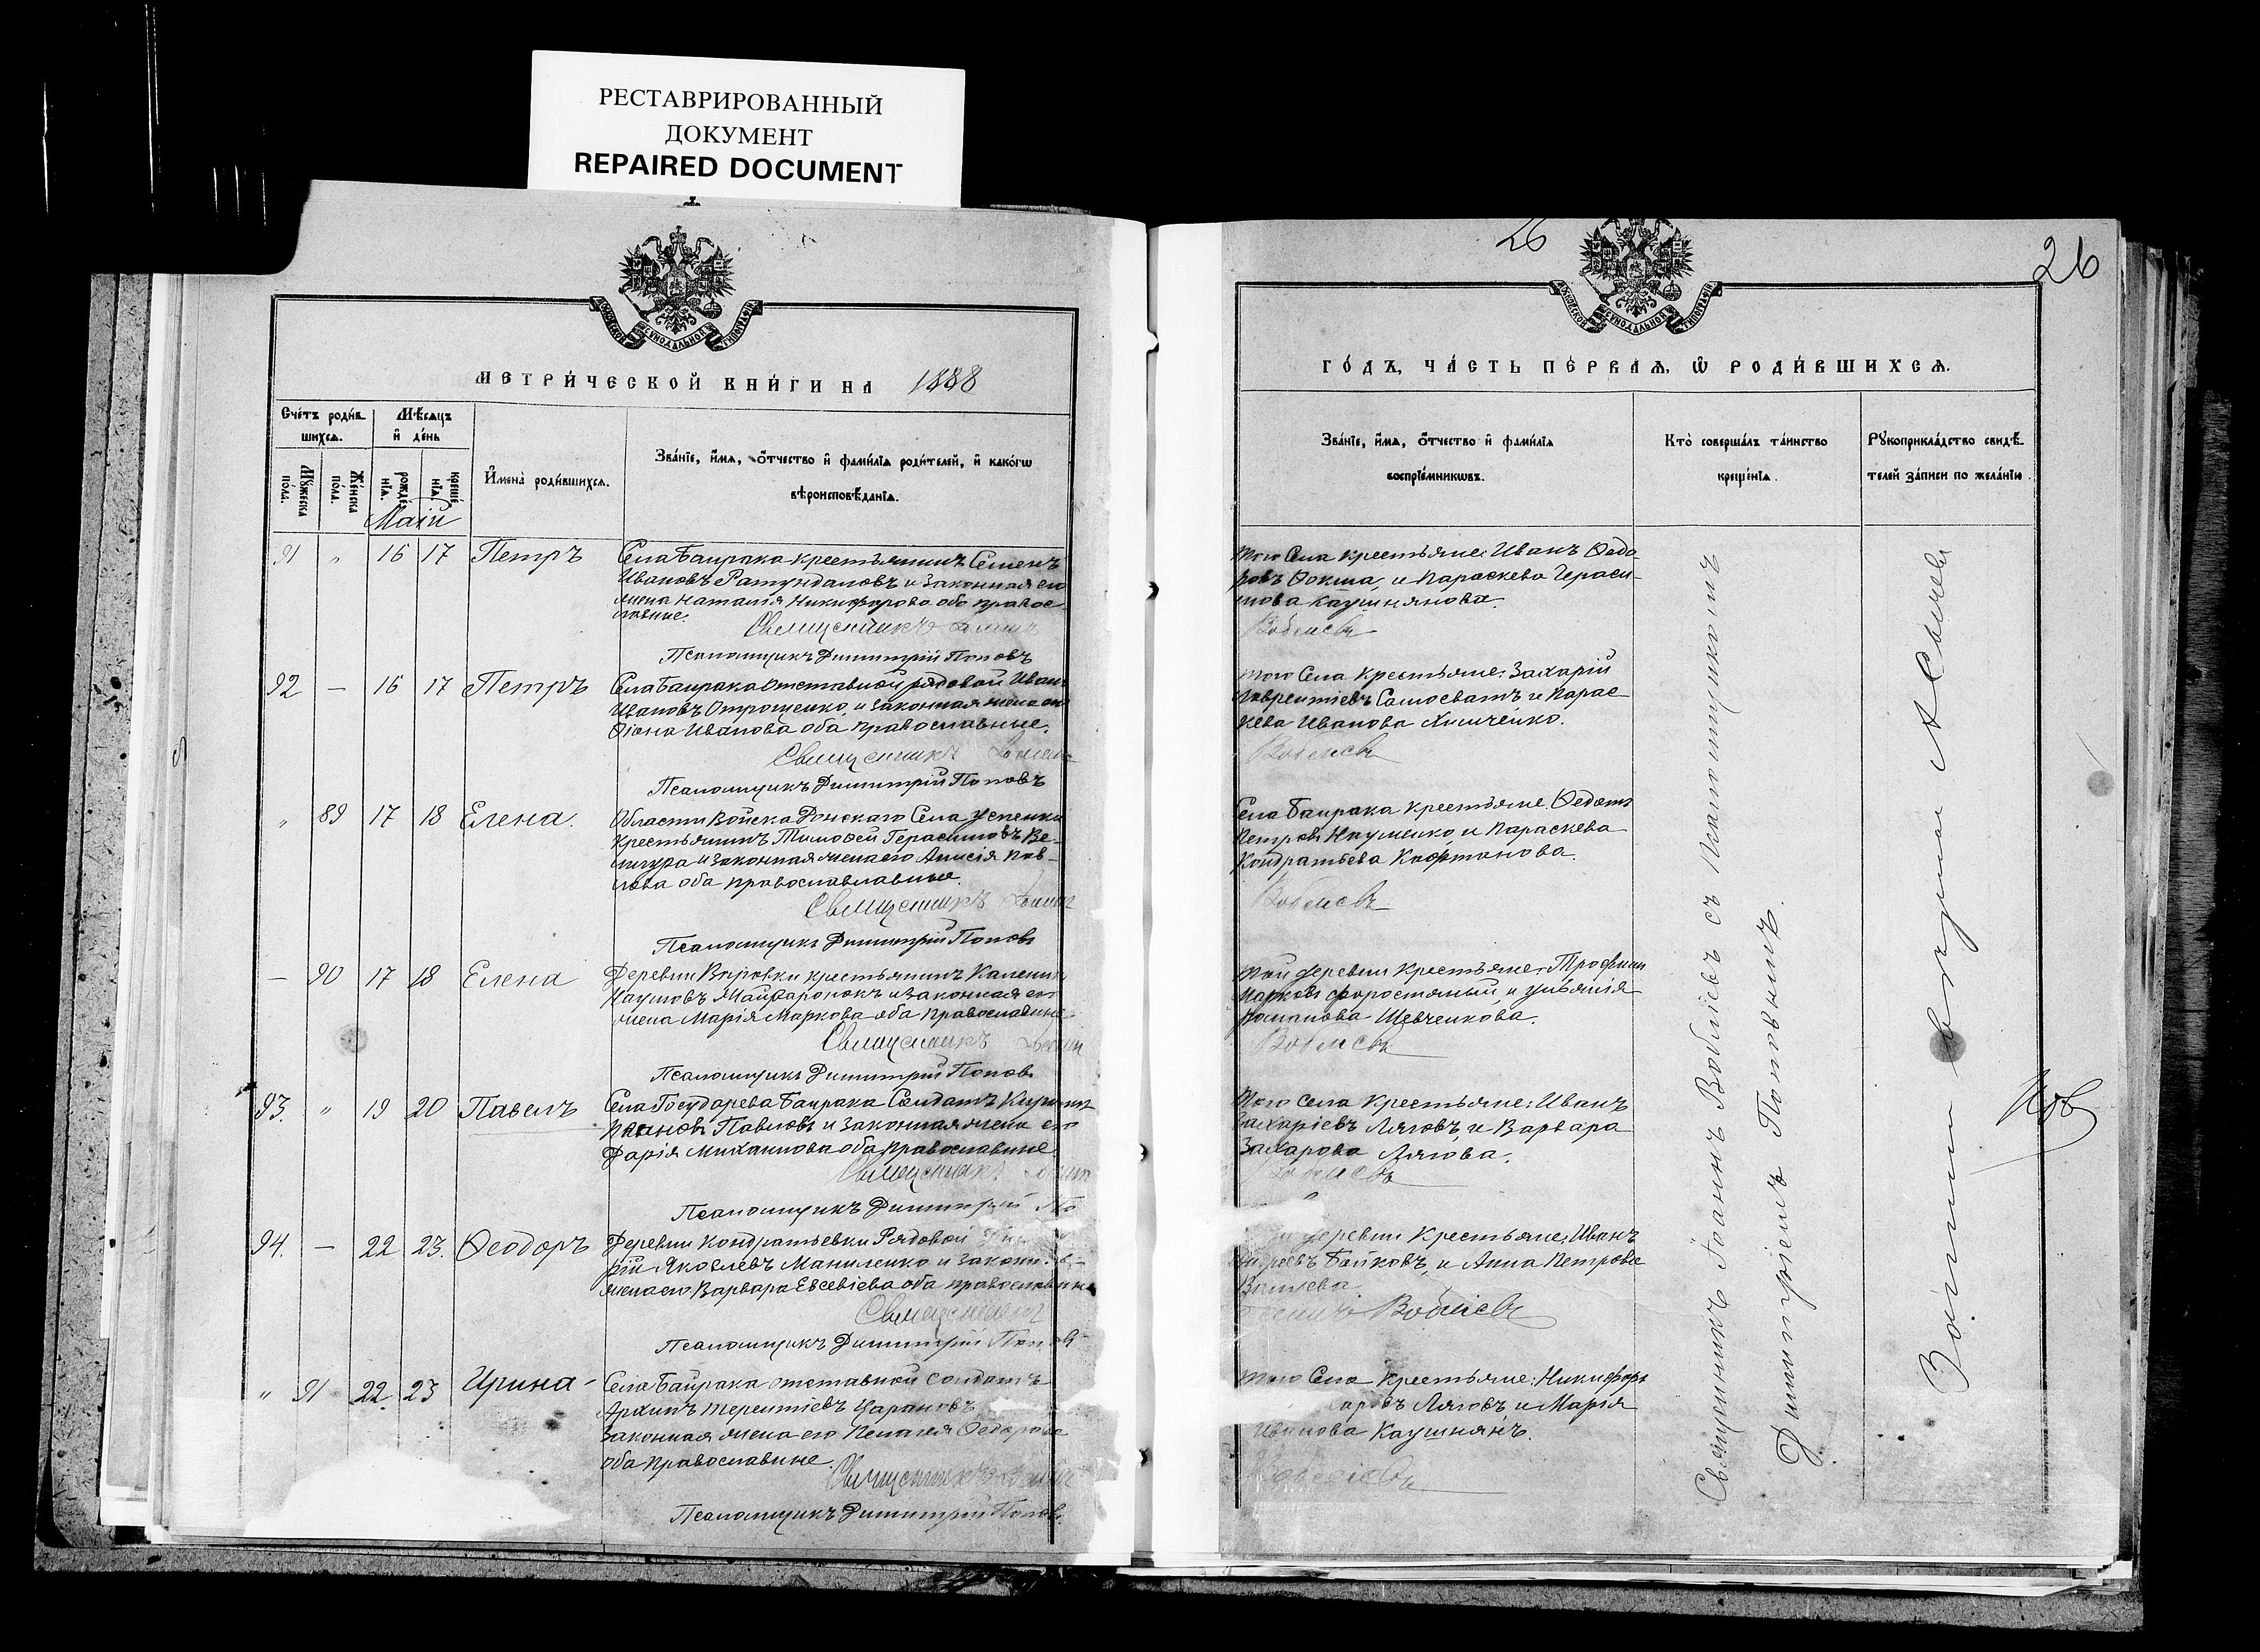 РЕСТАВРИРОВАННЫЙ
ДОКУМЕНТ
REPAIRED DOCUMENT
МЕТРИ́ЧЕСКОЙ КНИ́ГИ НА 1888
Сче́тъ роди́в
шихсѧ.
Мꙋ́жеска по́ла.
Же́нска по́ла.
Мѣ́сѧцъ
и҆ де́нь
рожде́нїѧ.
креще́нїѧ.
И҆мена̀ роди́вшихсѧ.
Зва́нїе, и҆́мѧ, ѻ҆́тчество и҆ фами́лїѧ роди́телей, и҆ како́гѡ
вѣроисповѣ́данїѧ.
Маій
91 „ 16 17 Петръ
Села Баирака крестьянинъ Семенъ
Ивановъ Ратундаловъ и законная его
жена Наталія Никифорова оба правос-
лавные.
Священникъ
Псаломщикъ Димитрій Поповъ
92 — 16 17 Петръ
Села Баирака отставной рядовой Иван
Ивановъ Отрошенко, и законная жена его
Ѳіона Иванова оба православные.
Священникъ
Псаломщикъ Димитрій Поповъ
„ 89 17 18 Елена.
Области Войска Донскаго Села Успенки
крестьянинъ Тимоѳей Герасимовъ Ве-
и законная жена его Анисія Пав-
лова оба православлавные.
Священникъ
Псаломщикъ Димитрій Поповъ
— 90 17 18 Елена
Деревни крестьянинъ
Наумовъ и законная его
жена Марія Маркова оба православные
Священникъ
Псаломщикъ Димитрій Поповъ
93. „ 19 20 Павелъ
Села Государева Баирака Солдатъ
Павловъ и законная жена его
Дарія Михаилова оба православные.
Священникъ
Псаломщикъ Димитрій По
94. — 22 23. Ѳеодоръ
Деревни Кондратьевки Рядовой
рій Яковлевъ Маниленко и законная
жена его Варвара Евсевіева оба православные
Священникъ
Псаломщикъ Димитрій Поповъ
„ 91 22. 23 Ирина
Села Баирака отставной солдатъ
Архипъ Терентіевъ Царановъ
законная жена его Пелагея Ѳедорова
оба православные.
Священникъ
Псаломщикъ Димитрій Поповъ.
26
26
ГО́ДЪ, ЧА́СТЬ ПЕ́РВАѦ, Ѡ҆ РОДИ́ВШИХСѦ.
Зва́нїе, и҆́мѧ, ѻ҆́тчество и҆ фами́лїѧ
воспрїе́мникѡвъ.
Кто̀ соверша́лъ та́инство
креще́нїѧ.
Рꙋкоприкла́дство свидѣ́-
телей за́писи по жела́нїю.
того Села крестьяне: Иванъ Ѳедо-
ровъ Ѳокша, и Параскева Гераси-
мова Каушнянова.
Воблiевъ
того Села крестьяне: Захарій
Лаврентіевъ Самосватъ и Парас-
кева Иванова Химченко.
Воблiевъ
Села Баирака крестьяне. Ѳедотъ
Петровъ Науменко, и Параскева
Кондратьева Кафтанова.
Воблiевъ
той деревни крестьяне: Трофимъ
Марковъ и Ульянія
Романова Шевченкова.
Воблiевъ
того села крестьяне: Иванъ
Захаріевъ Ляховъ, и Варвара
Захарова Ляхова.
Воблiевъ
деревни Крестьяне, Иванъ
Байковъ, и Анна Петрова
Воблiевъ
того Села Крестьяне: Никифоръ
Ляховъ и Марія
Иванова Каушнянъ.
Воблiевъ
Священникъ Іоаннъ Воблiевъ съ Псаломщикомъ
Димитріемъ Поповымъ.